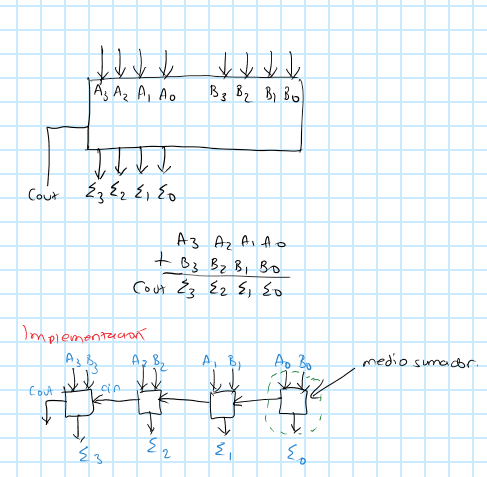 A3 A2 A1 A0 B3 B2 B1 B0
Cout Σ3 Σ2 Σ1 Σ0
A3 A2 A1 A0
+ B3 B2 B1 B0
Cout Σ3 Σ2 Σ1 Σ0
Implementación
A3 B3 A2 B2 A1 B1 A0 B0 medio sumador.
Cout cin
Σ3 Σ2 Σ1 Σ0